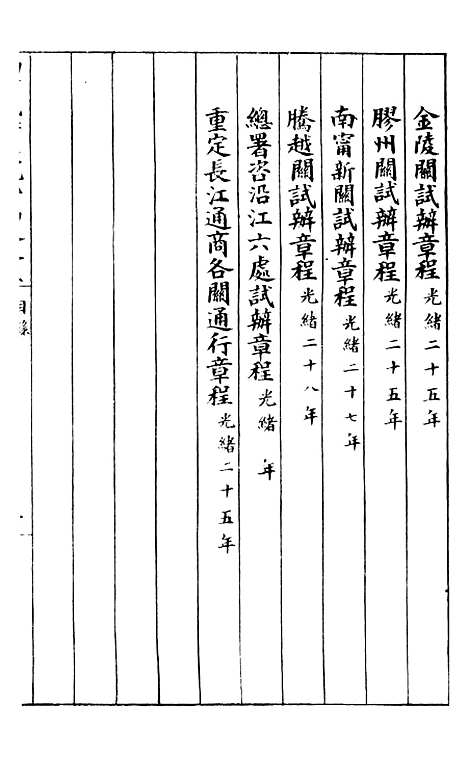 金陵關試辦章程光緒二十五年
膠州關試辦章程光緒二十五年
南甯新關試辦章程光緒二十七年
騰越關試辦章程光緒二十八年
總署咨沿江六處試辦章程光緒　年
重定長江通商各關通行章程光緒二十五年
目錄